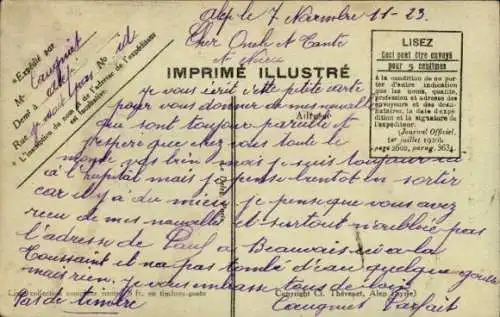 Expédié par
M Caugniet
Demt à alep
Rue
L'inscription du nom et de l'adresse de l'expéditeur
est facultative.
alep le 7 Novembre 11-23
Cher Oncle et Tante
IMPRIMÉ ILLUSTRÉ
LISEZ
Ceci peut être envoyé
pour 5 centimes
à la condition de ne porter d'autre indication
que les noms, qualité,
profession et adresse des
envoyeurs et des destinataires, la date d'expédition et la signature
de l'expéditeur
(Journal Officiel,
1er juillet 1920,
page 2600, parag. 363)
je vous écrit cette petite carte
pour vous donner de mes nouvelles
qui sont toujours pareille et
j'espere que chez vous toute le
monde vas bien mais je suis toujour
a l'hopital mais je pense bientot en sortir
car il y a du mieu je pense que vous avez
recu de mes nouvelle et surtout n'oublie pas
l'adresse de Paul a Beauvais a la
Toussaint et na pas tombé d'eau quelque goute
mais rien. je vous embrasse tous de loin
Pas de timbre
Caugniet Parfait
Copyright Cl. Thévenet, Alep (Syrie)